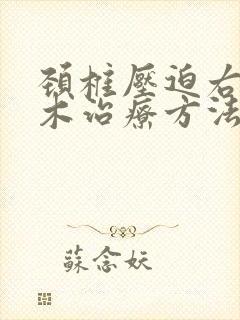 頚椎壓迫右
木治療方法
蘇念妖